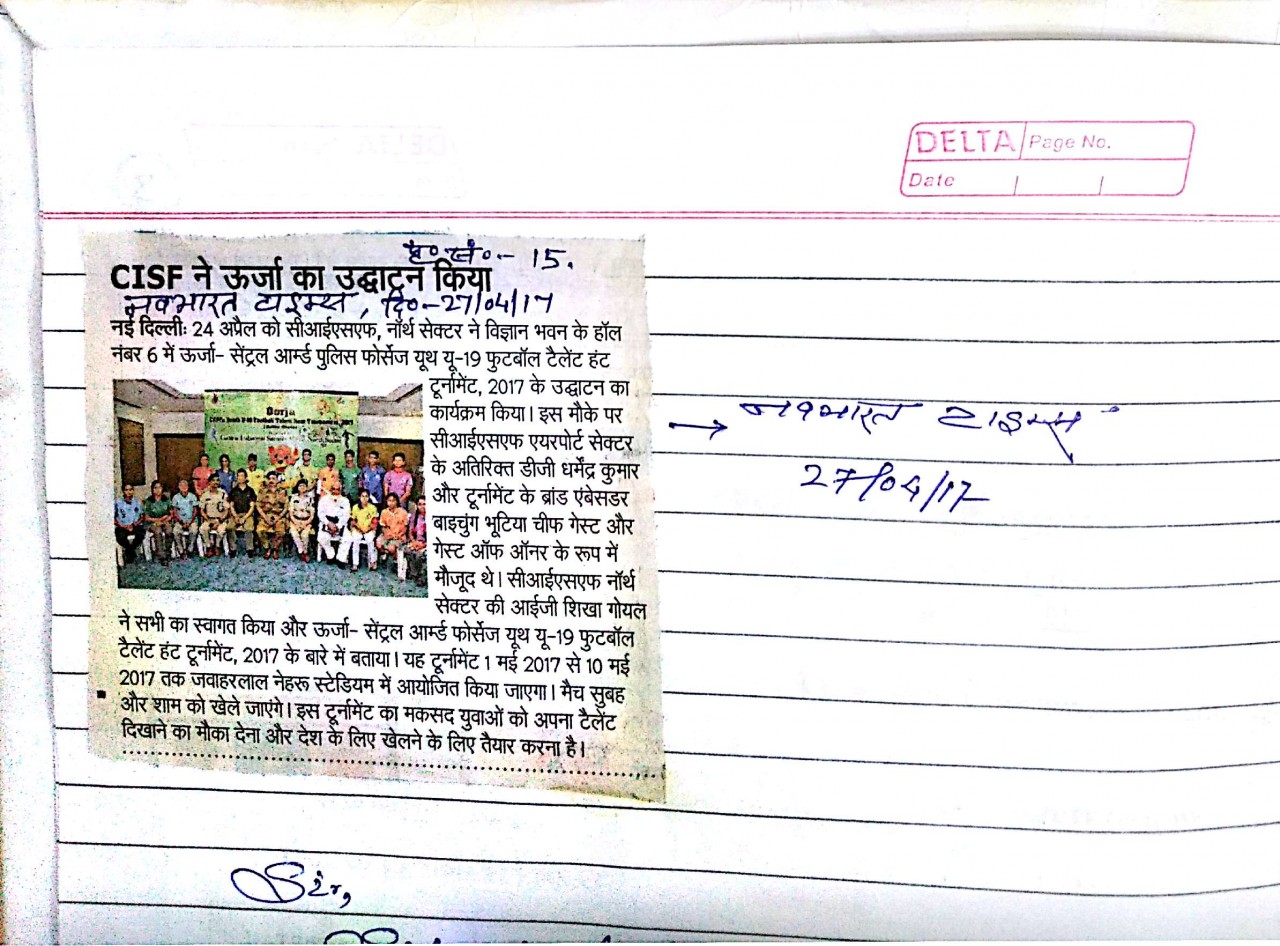 DELTA Page No.
Date
पृ० सं० - 15.
CISF ने ऊर्जा का उद्घाटन किया
नवभारत टाइम्स, दि०-27/04/17
नई दिल्ली: 24 अप्रैल को सीआईएसएफ, नॉर्थ सेक्टर ने विज्ञान भवन के हॉल
नंबर 6 में ऊर्जा- सेंट्रल आर्म्ड पुलिस फोर्सेज यूथ यू-19 फुटबॉल टैलेंट हंट
टूर्नामेंट, 2017 के उद्घाटन का
कार्यक्रम किया। इस मौके पर
सीआईएसएफ एयरपोर्ट सेक्टर
के अतिरिक्त डीजी धर्मेंद्र कुमार
और टूर्नामेंट के ब्रांड एंबेसडर
बाइचुंग भूटिया चीफ गेस्ट और
गेस्ट ऑफ ऑनर के रूप में
मौजूद थे। सीआईएसएफ नॉर्थ
सेक्टर की आईजी शिखा गोयल
ने सभी का स्वागत किया और ऊर्जा- सेंट्रल आर्म्ड फोर्सेज यूथ यू-19 फुटबॉल
टैलेंट हंट टूर्नामेंट, 2017 के बारे में बताया। यह टूर्नामेंट 1 मई 2017 से 10 मई
2017 तक जवाहरलाल नेहरू स्टेडियम में आयोजित किया जाएगा। मैच सुबह
और शाम को खेले जाएंगे। इस टूर्नामेंट का मकसद युवाओं को अपना टैलेंट
दिखाने का मौका देना और देश के लिए खेलने के लिए तैयार करना है।
→ नवभारत टाइम्स
27/04/17
Sir,